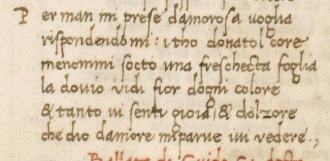 Per man mi prese damorosa uoglia
rispondendomi: itho donatol core
menommi socto una freschecta foglia
la douio uidi fior dogni colore
& tanto ui senti gioia & dolzore
che dio damore mi parue iui uedere.,
Ballata di Guido